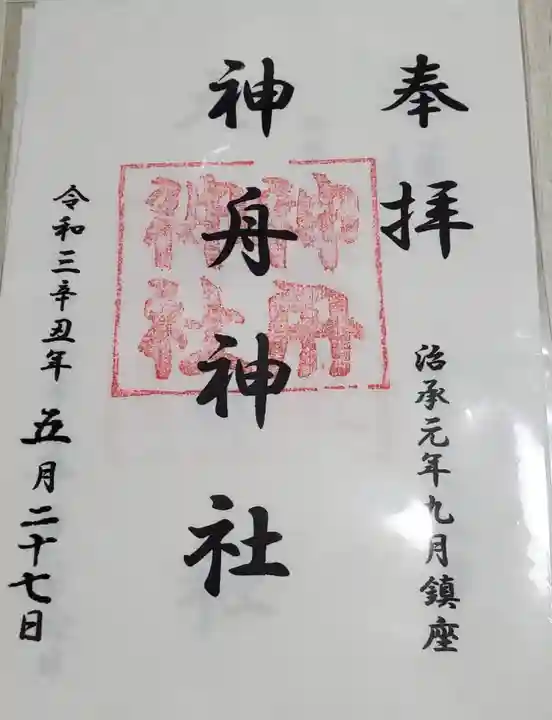 奉拝
治承元年九月鎮座
神舟神社
神舟神社
令和三辛丑年五月二十七日